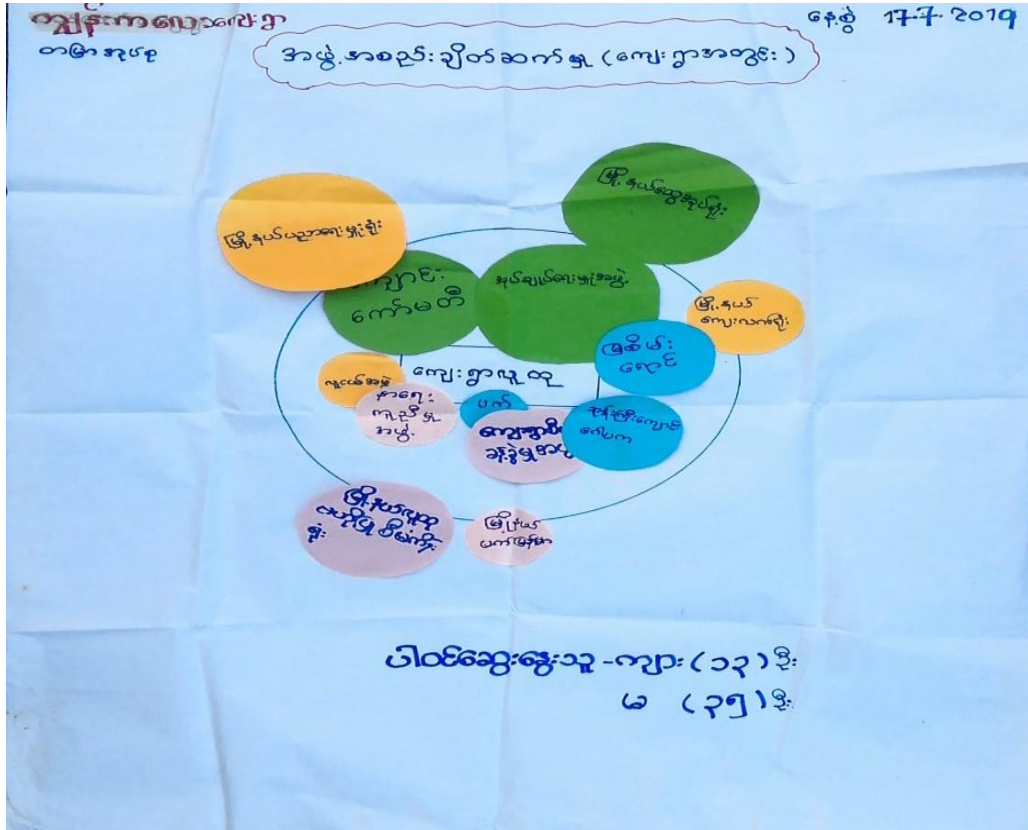 ကျွန်းကလေးကျေးရွာ
တမြာအုပ်စု
နေ့စွဲ 17-7-2019
အဖွဲ့အစည်းချိတ်ဆက်မှု (ကျေးရွာအတွင်း)
မြို့နယ်ပညာရေးမှူးရုံး
မြို့နယ်ထွေအုပ်ရုံး
ကျောင်း
ကော်မတီ
အုပ်ချုပ်ရေးမှူးအဖွဲ့
မြို့နယ်
ကျေးလက်ရုံး
မြစိမ်း
ရောင်
လူငယ်အဖွဲ့
ကျေးရွာလူထု
နာရေး
ကူညီမှု
အဖွဲ့
ပက်
ကျေးရွာစီမံ
ခန့်ခွဲမှုအဖွဲ့
ဘုန်းကြီးကျောင်း
ဂေါပက
မြို့နယ်လူထု
ဗဟိုပြုစီမံကိန်း
ရုံး
မြို့နယ်
ပက်မြန်မာ
ပါဝင်ဆွေးနွေးသူ - ကျား (၁၃) ဦး
မ (၃၅) ဦး